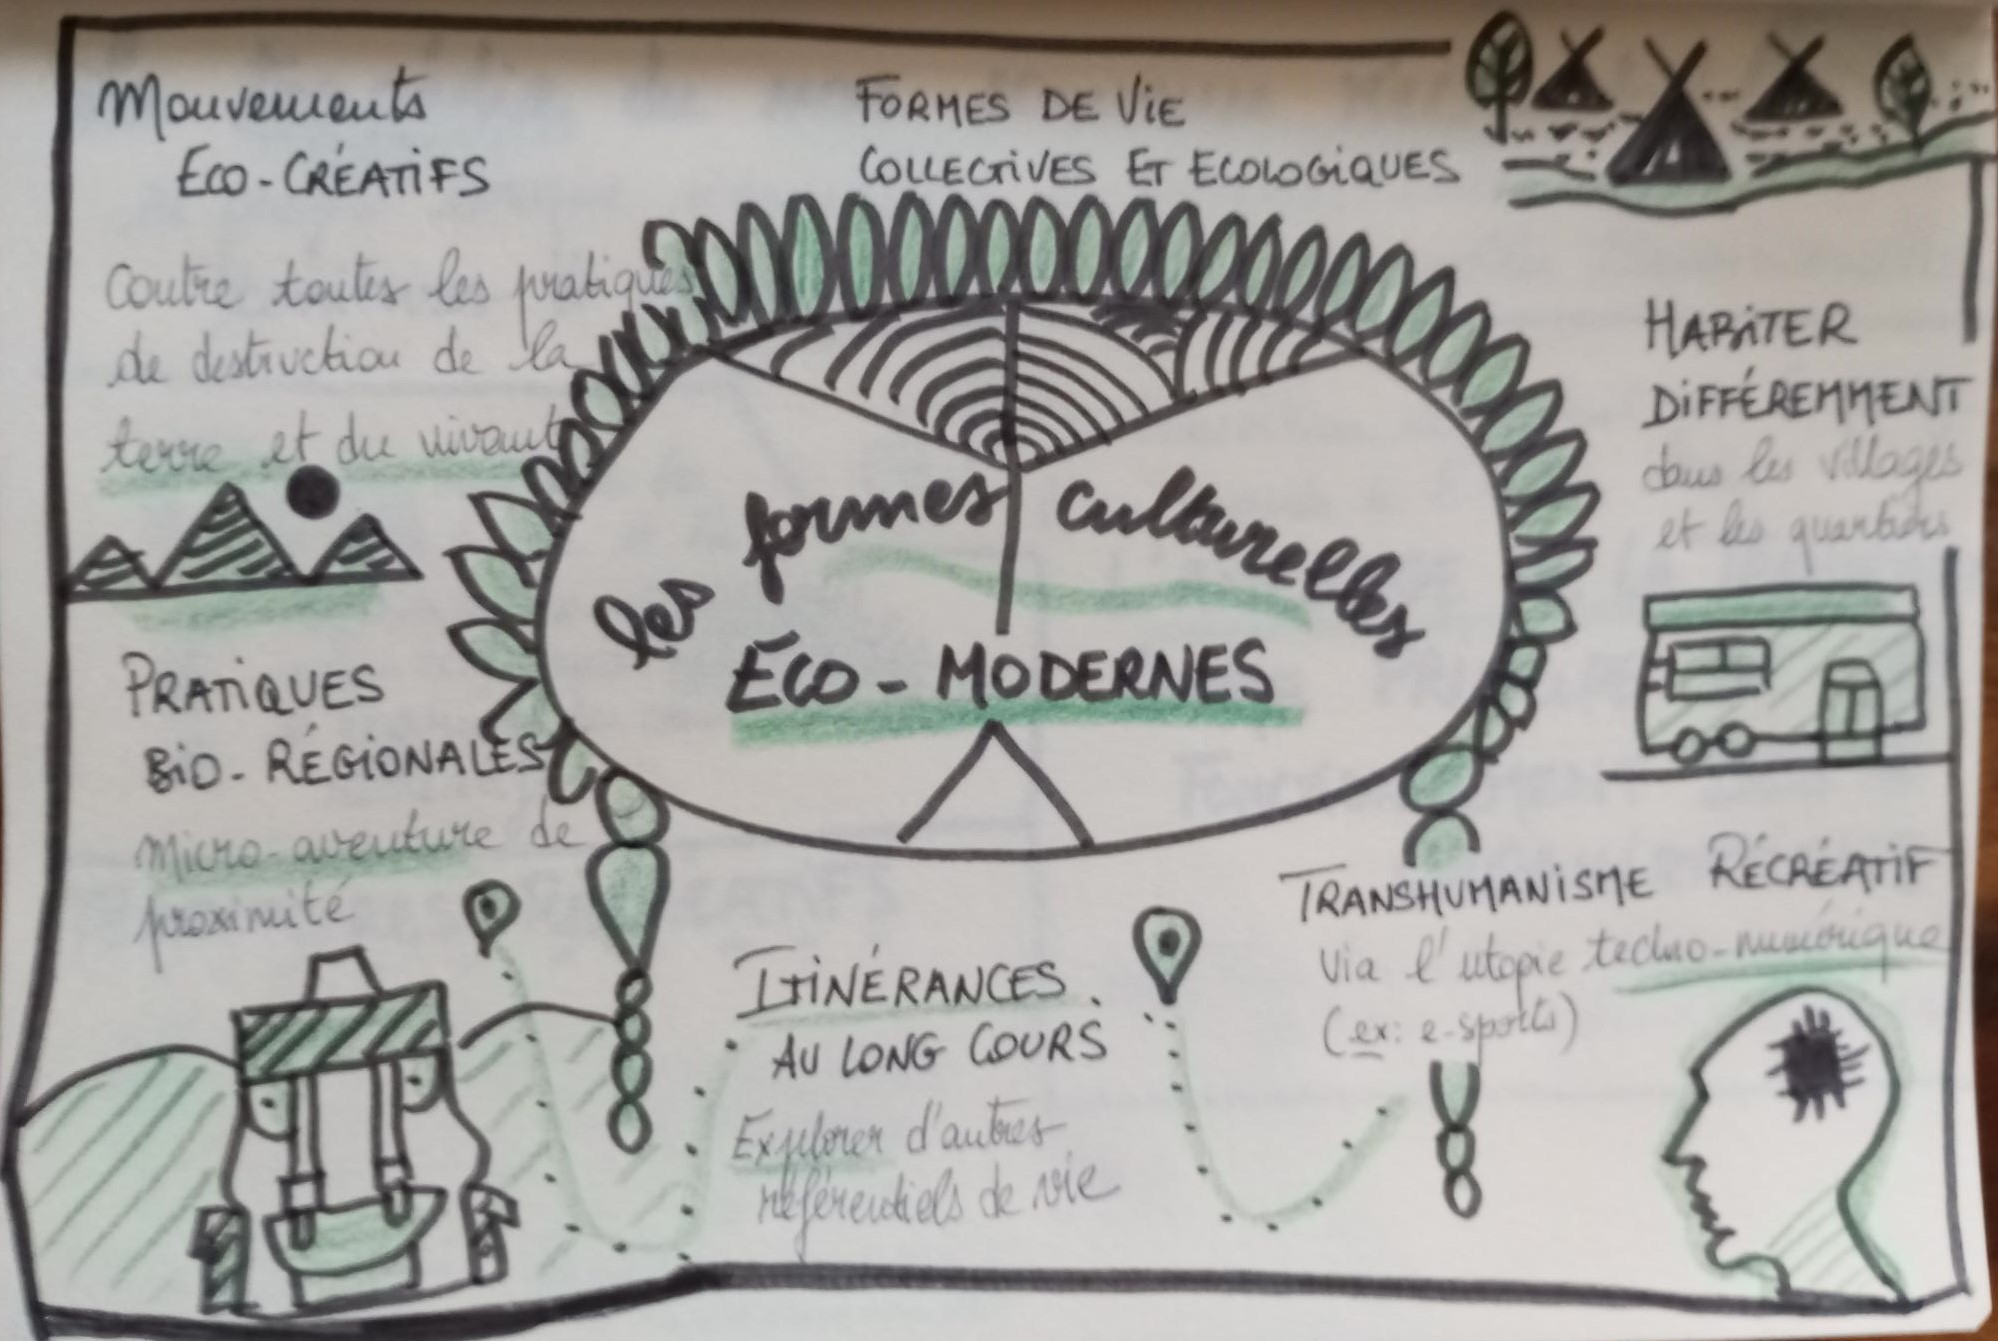 Mouvements
ÉCO-CRÉATIFS
Contre toutes les pratiques
de destruction de la
terre et du vivant
FORMES DE VIE
COLLECTIVES ET ECOLOGIQUES
HABITER
DIFFÉREMMENT
dans les villages
et les quartiers
les formes culturelles
ÉCO-MODERNES
PRATIQUES
BIO-RÉGIONALES
Micro-aventure de
proximité
ITINÉRANCES
AU LONG COURS
Explorer d'autres
référentiels de vie
TRANSHUMANISME RÉCRÉATIF
via l'utopie techno-numérique
(ex: e-sports)